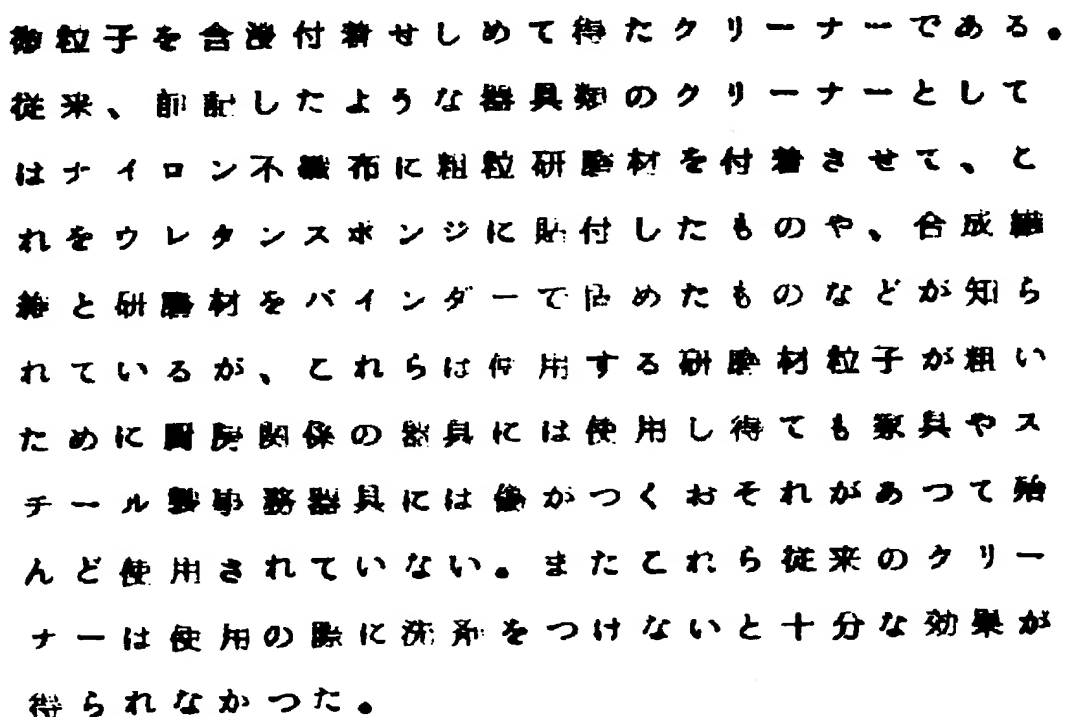 微粒子を含浸付着せしめて得たクリーナーである。
従来、前記したような器具類のクリーナーとして
はナイロン不織布に粗粒研磨材を付着させて、と
れをウレタンスポンジに貼付したものや、合成繊
維と研磨材をバインダーで固めたものなどが知ら
れているが、これらは使用する研磨材粒子が粗い
ために厨房関係の器具には使用し得ても家具やス
チール製事務器具には傷がつくおそれがあつて殆
んど使用されていない。またこれら従来のクリー
ナーは使用の際に洗剤をつけないと十分な効果が
得られなかつた。